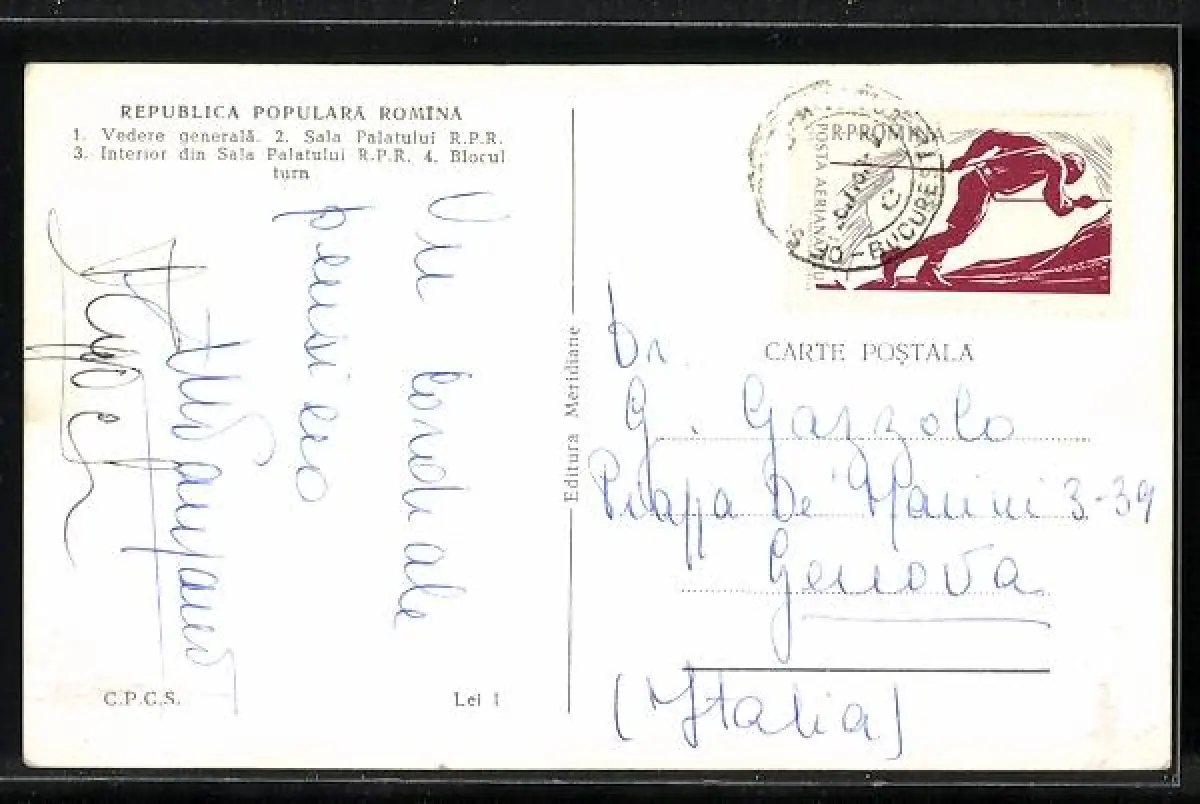 REPUBLICA POPULARĂ ROMÎNĂ
1. Vedere generală. 2. Sala Palatului R.P.R.
3. Interior din Sala Palatului R.P.R. 4. Blocul
turn
Un cordiale
pensiero
C.P.C.S.
Lei 1
Editura Meridiane
R.P.ROMINA
POSTA AERIANA
BUCUREȘTI
CARTE POȘTALĂ
Dr.
G. Gazzolo
Piazza De' Marini 3-39
Genova
(Italia)